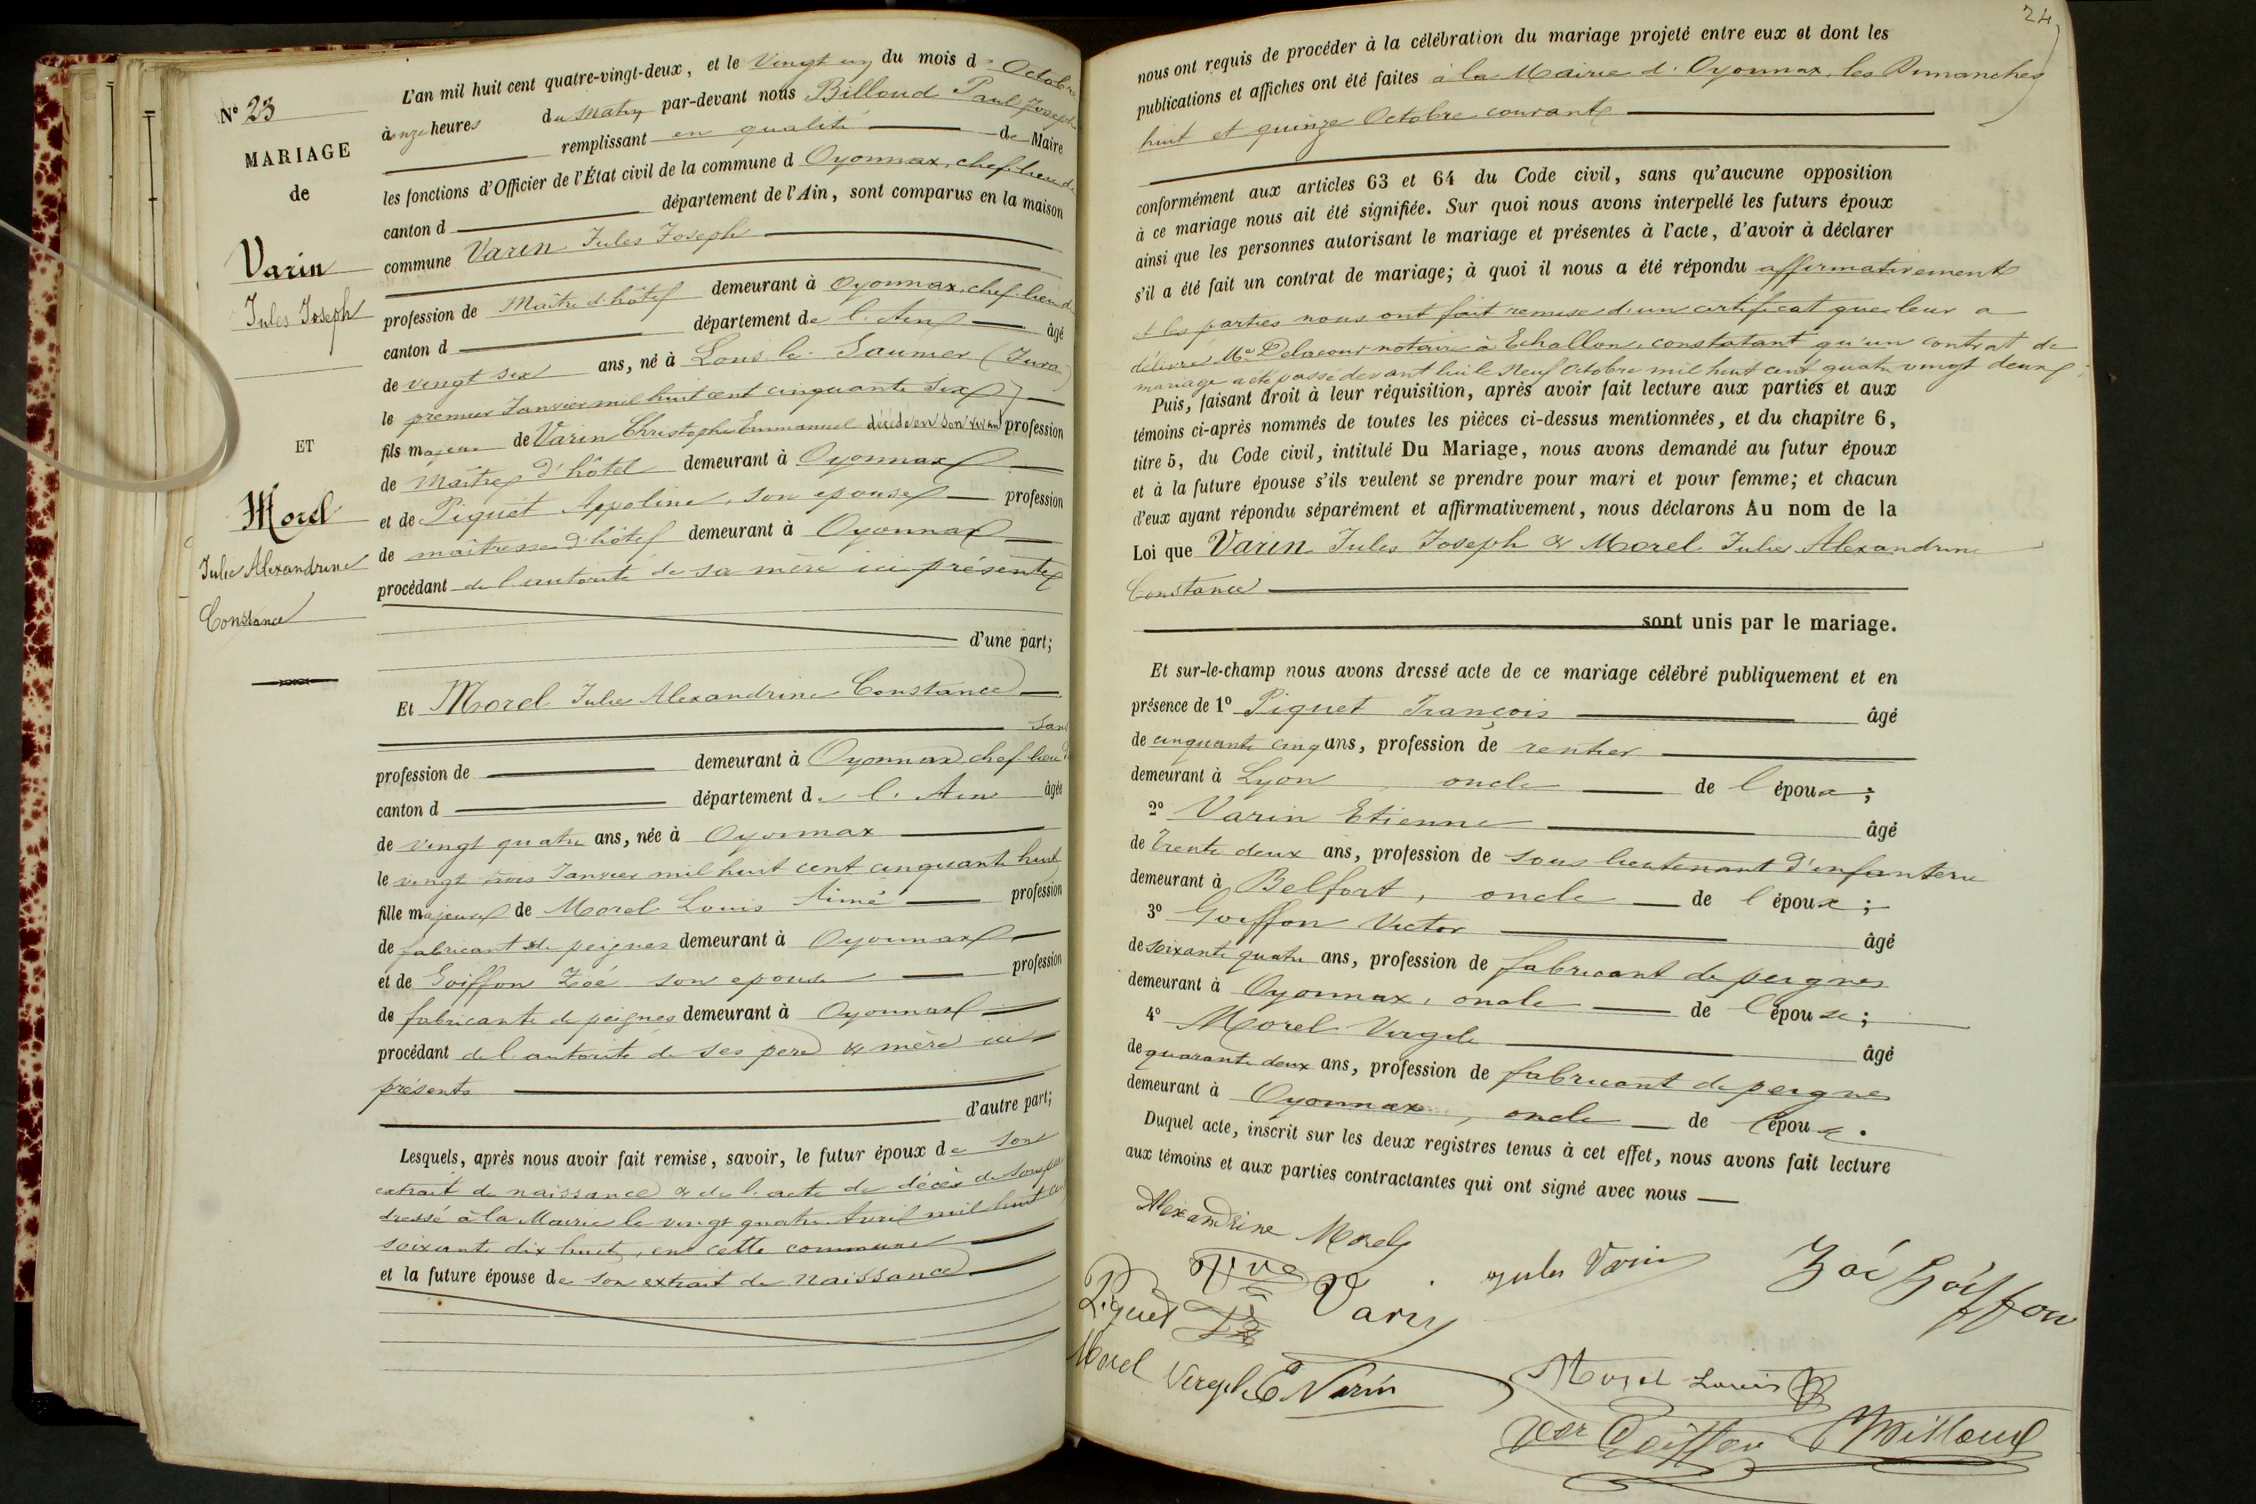 N° 23
MARIAGE
de
Varin
Jules Joseph
ET
Morel
Julie Alexandrine
Constance
L'an mil huit cent quatre-vingt-deux, et le Vingt un du mois d'Octobre
à onze heures du matin par-devant nous Billoud Paul Joseph
remplissant en qualité de Maire
les fonctions d'Officier de l'État civil de la commune d Oyonnax, chef-lieu de
canton d département de l'Ain, sont comparus en la maison
commune Varin Jules Joseph
profession de Maître d'hôtel demeurant à Oyonnax, chef-lieu de
canton d département de l'Ain âgé
de vingt six ans, né à Lons le Saunier (Jura)
le premier Janvier mil huit cent cinquante six
fils majeur de Varin Christophe Emmanuel décédé en son vivant profession
de Maître d'hôtel demeurant à Oyonnax
et de Piquet Appoline, son épouse profession
de maîtresse d'hôtel demeurant à Oyonnax
procédant de l'autorité de sa mère ici présente
d'une part;
Et Morel Julie Alexandrine Constance
sans
profession de demeurant à Oyonnax chef lieu de
canton d département de l'Ain âgée
de vingt quatre ans, née à Oyonnax
le vingt trois Janvier mil huit cent cinquante huit
fille majeure de Morel Louis Aimé profession
de fabricant de peignes demeurant à Oyonnax
et de Goiffon Zoé son epouse profession
de fabricante de peignes demeurant à Oyonnax
procédant de l'autorité de ses père & mère ici
présents
d'autre part;
Lesquels, après nous avoir fait remise, savoir, le futur époux de son
extrait de naissance & de l'acte de décès de son père
dressé à la Mairie le vingt quatre Avril mil huit cent
soixante dix huit, en cette commune
et la future épouse de son extrait de naissance
24
nous ont requis de procéder à la célébration du mariage projeté entre eux et dont les
publications et affiches ont été faites à la Mairie d'Oyonnax, les Dimanches
huit et quinze Octobre courant
conformément aux articles 63 et 64 du Code civil, sans qu'aucune opposition
à ce mariage nous ait été signifiée. Sur quoi nous avons interpellé les futurs époux
ainsi que les personnes autorisant le mariage et présentes à l'acte, d'avoir à déclarer
s'il a été fait un contrat de mariage; à quoi il nous a été répondu affirmativement
et les parties nous ont fait remise d'un certificat que leur a
délivré Me Delacour notaire à Echallon, constatant qu'un contrat de
mariage a été passé devant lui le neuf Octobre mil huit cent quatre vingt deux;
Puis, faisant droit à leur réquisition, après avoir fait lecture aux parties et aux
témoins ci-après nommés de toutes les pièces ci-dessus mentionnées, et du chapitre 6,
titre 5, du Code civil, intitulé Du Mariage, nous avons demandé au futur époux
et à la future épouse s'ils veulent se prendre pour mari et pour femme; et chacun
d'eux ayant répondu séparément et affirmativement, nous déclarons Au nom de la
Loi que Varin Jules Joseph & Morel Julie Alexandrine
Constance
sont unis par le mariage.
Et sur-le-champ nous avons dressé acte de ce mariage célébré publiquement et en
présence de 1° Piquet François âgé
de cinquante cinq ans, profession de rentier
demeurant à Lyon, oncle de l'époux;
2° Varin Etienne âgé
de trente deux ans, profession de sous lieutenant d'infanterie
demeurant à Belfort, oncle de l'époux;
3° Goiffon Victor âgé
de soixante quatre ans, profession de fabricant de peignes
demeurant à Oyonnax, oncle de l'épouse;
4° Morel Virgile âgé
de quarante deux ans, profession de fabricant de peignes
demeurant à Oyonnax, oncle de l'épouse.
Duquel acte, inscrit sur les deux registres tenus à cet effet, nous avons fait lecture
aux témoins et aux parties contractantes qui ont signé avec nous
Alexandrine Morel
Vve Varin
Jules Varin
Zoé Goiffon
Piquet
Morel Virgile
E Varin
Morel Louis
Vor Goiffon
Billoud